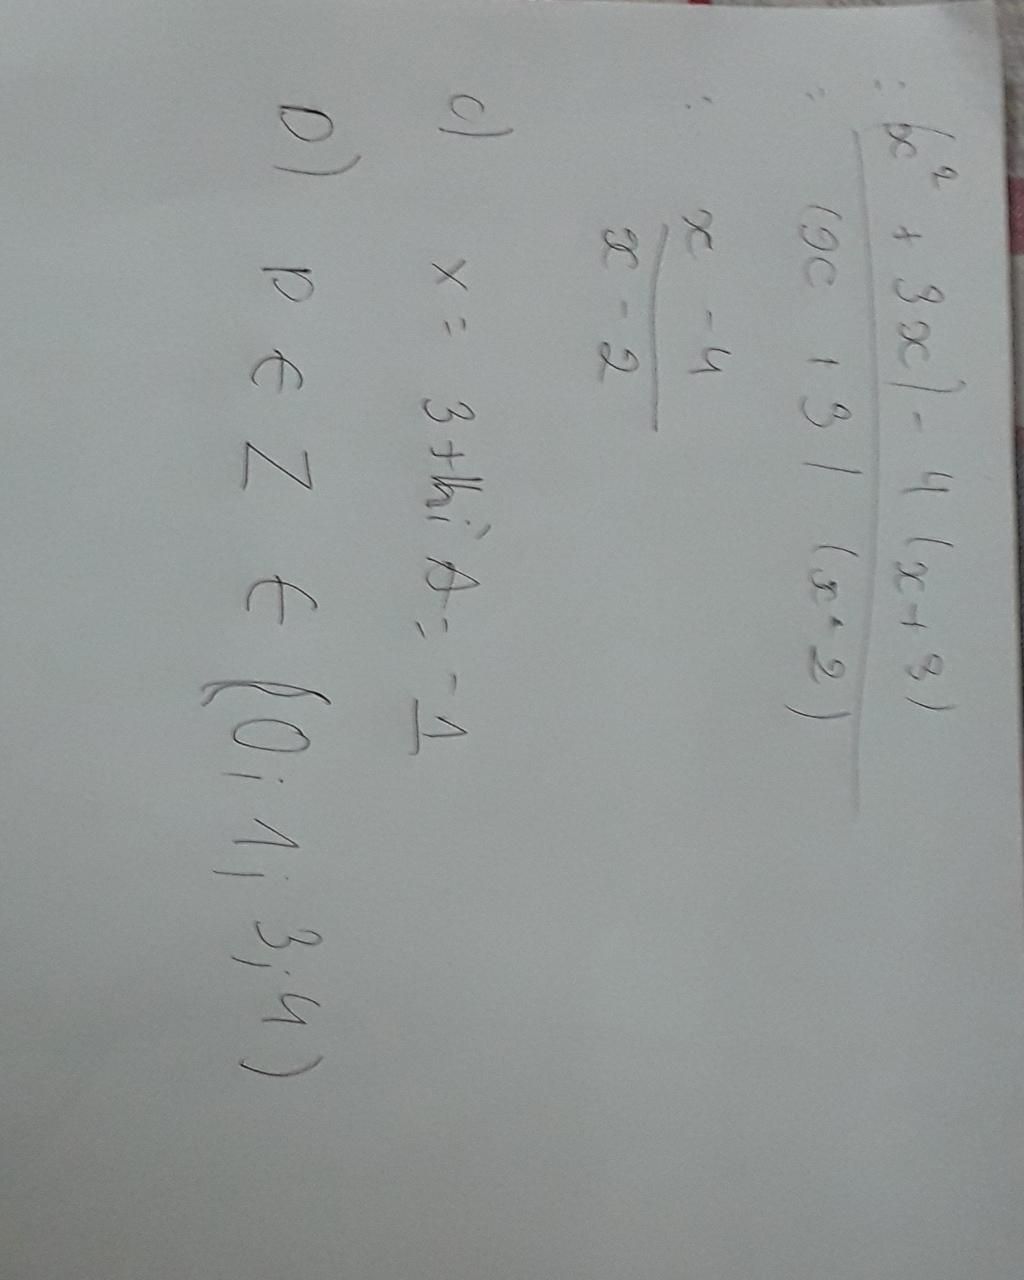 = (x² + 3x) - 4 (x + 3)
= (x + 3) (x - 2)
= x - 4
x - 2
c) x = 3 thì A = -1
D) P ∈ Z ∈ (0; 1; 3; 4)